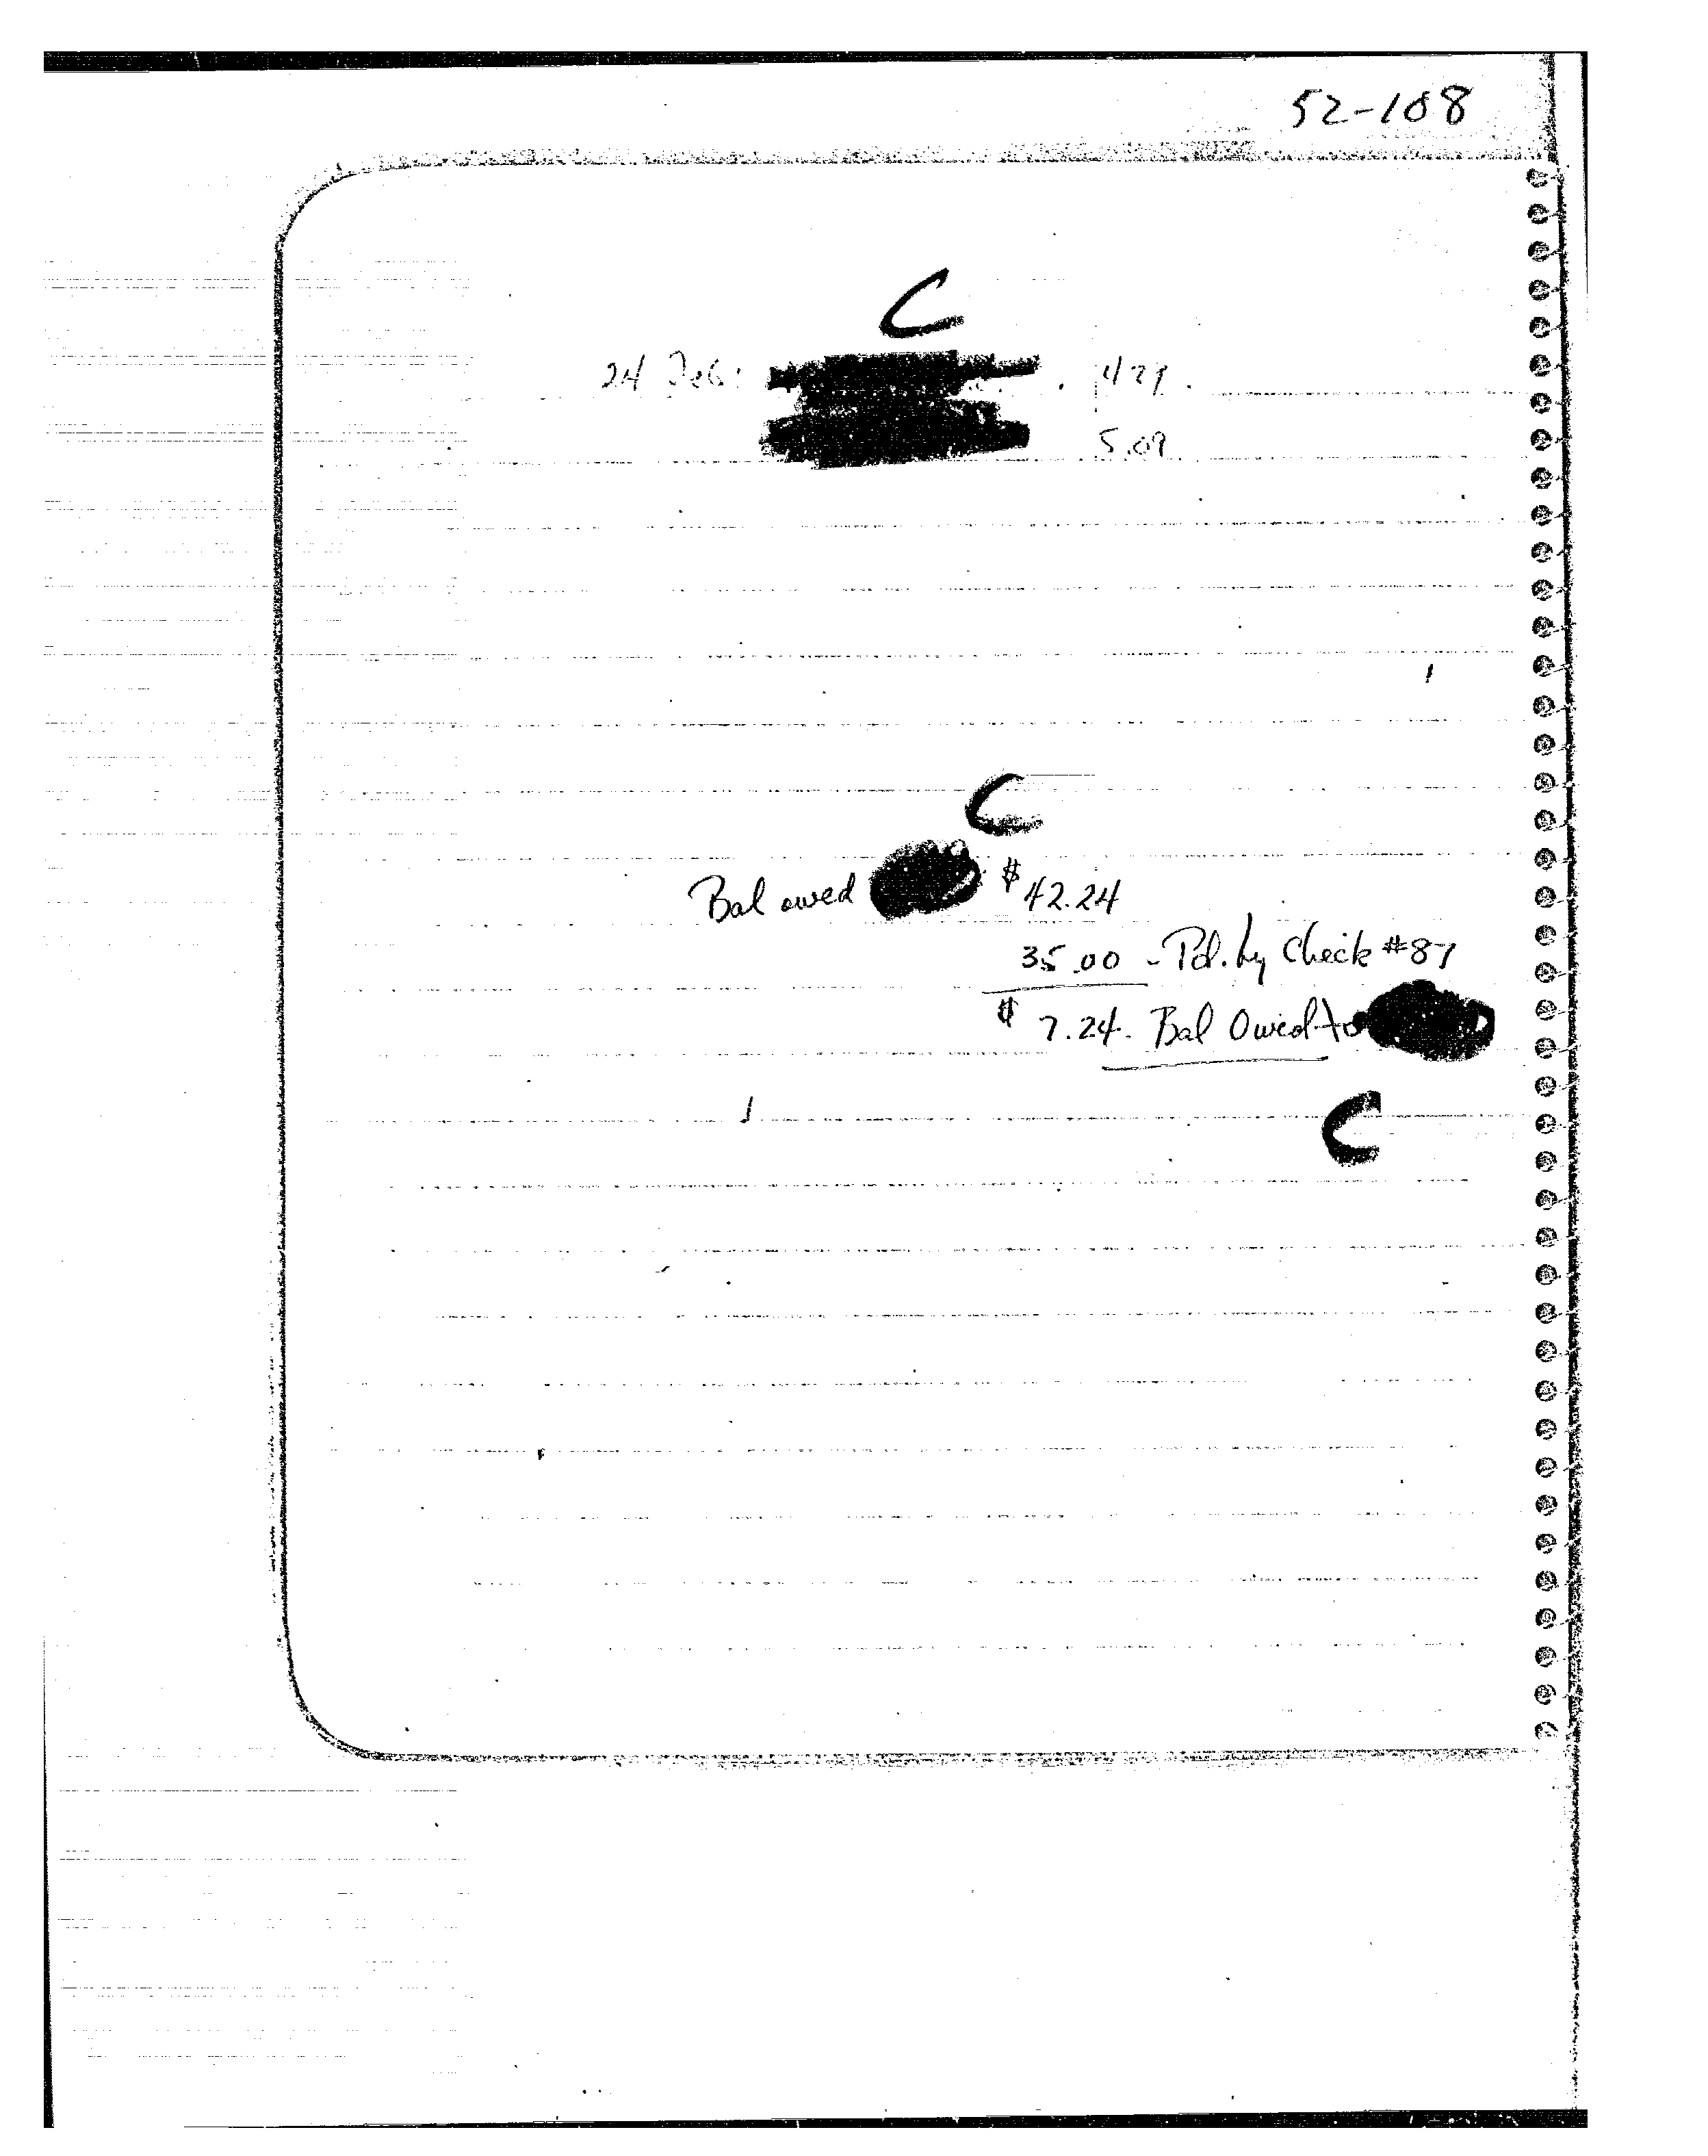 52-108
C
24 Feb: 4.29.
5.09
C
Bal owed $42.24
35.00 - Pd. by Check #87
$7.24. Bal Owed to
C